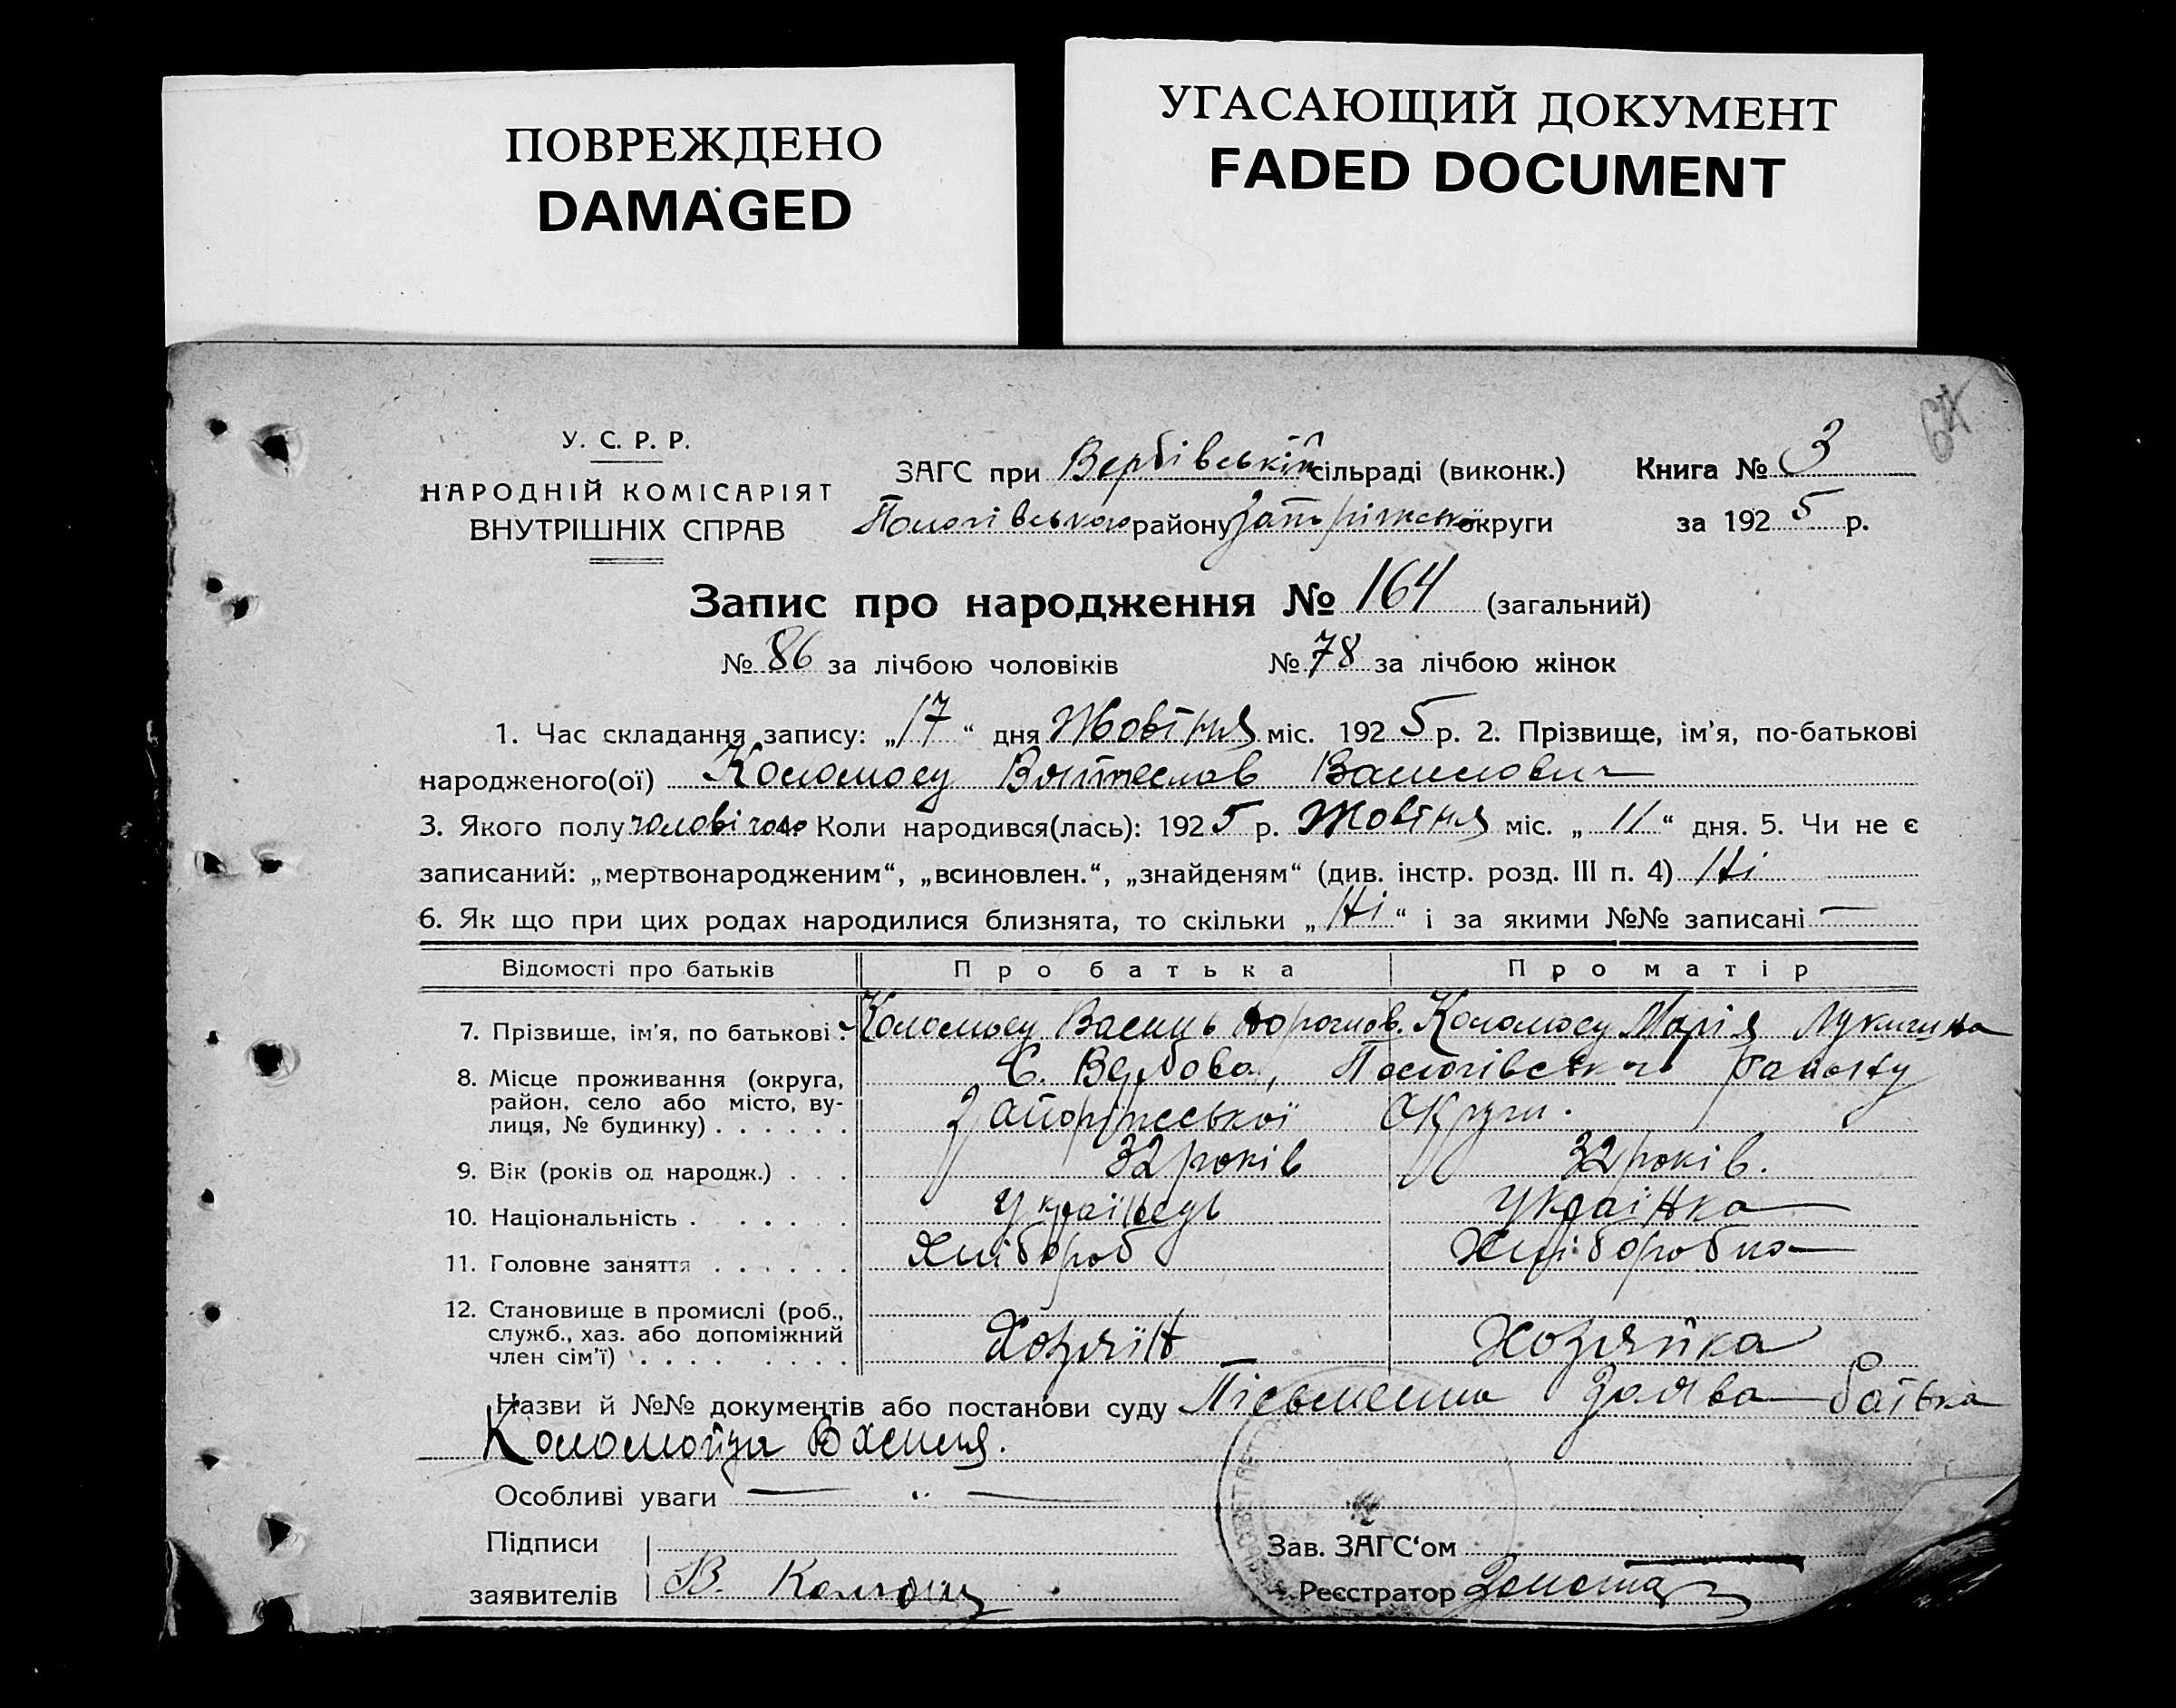 ПОВРЕЖДЕНО
DAMAGED
УГАСАЮЩИЙ ДОКУМЕНТ
FADED DOCUMENT
64
У. С. Р. Р.
НАРОДНІЙ КОМІСАРІЯТ
ВНУТРІШНІХ СПРАВ
ЗАГС при Вербівській сільраді (виконк.) Книга № 3
Пологівського району Запоріжської округи за 1925 р.
Запис про народження № 164 (загальний)
№ 86 за лічбою чоловіків № 78 за лічбою жінок
1. Час складання запису: „17“ дня Жовтня міс. 1925 р. 2. Прізвище, ім'я, по-батькові
народженого(ої) Коломоєц Васильович
3. Якого полу чоловічого 4. Коли народився(лась): 1925 р. Жовтня міс. „11“ дня. 5. Чи не є
записаний: „мертвонародженим“, „всиновлен.“, „знайденям“ (див. інстр. розд. III п. 4) Ні
6. Як що при цих родах народилися близнята, то скільки „Ні“ і за якими №№ записані —
Відомості про батьків Про батька Про матір
7. Прізвище, ім'я, по батькові . Коломоєц Василь Коломоєц Марія
8. Місце проживання (округа, район, село або місто, вулиця, № будинку) . . . . . . С. Вербова, Пологівського району
Запоріжської Округи.
9. Вік (років од народж.) . . . 32 років 32 років.
10. Національність . . . . . . Українець Українка
11. Головне заняття . . . . . . Хлібороб Хліборобка
12. Становище в промислі (роб., служб., хаз. або допоміжний член сім'ї) . . . . . . . . Хозяїн Хозяйка
Назви й №№ документів або постанови суду Пісьменна заява батька
Коломойця Василя.
Особливі уваги — „ —
Підписи
заявителів В.
Зав. ЗАГС'ом
Реєстратор